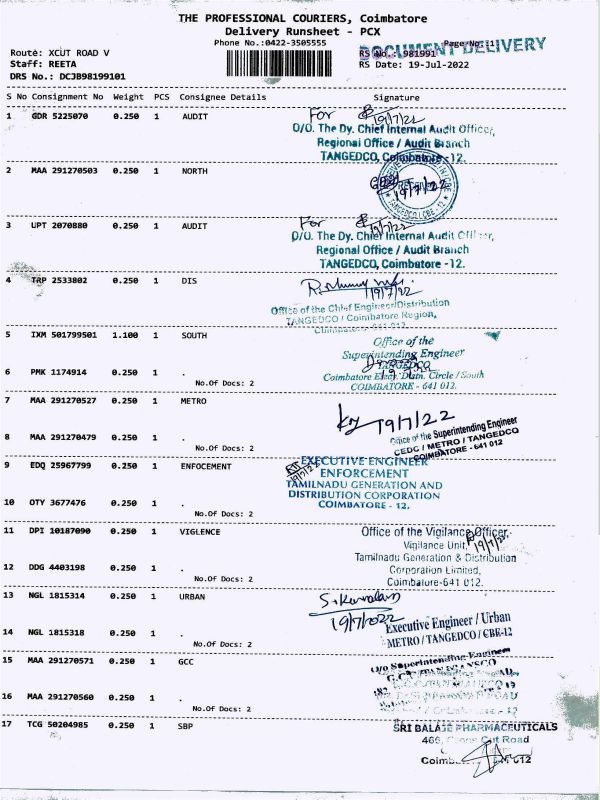 THE PROFESSIONAL COURIERS, Coimbatore
Delivery Runsheet - PCX
Phone No.:0422-3505555
Page No.:1
DOCUMENT DELIVERY
Route: XCUT ROAD V
RS No.: 981991
Staff: REETA
RS Date: 19-Jul-2022
DRS No.: DCJB98199101
S No Consignment No Weight PCS Consignee Details Signature
1 GDR 5225070 0.250 1 AUDIT
For 19/7/22
D/O. The Dy. Chief Internal Audit Officer,
Regional Office / Audit Branch
TANGEDCO, Coimbatore -12.
2 MAA 291270503 0.250 1 NORTH
RECEIVED
19/7/22
TANGEDCO / CBE - 12
3 UPT 2070880 0.250 1 AUDIT
For 19/7/22
D/O. The Dy. Chief Internal Audit Officer,
Regional Office / Audit Branch
TANGEDCO, Coimbatore -12.
4 TRP 2533802 0.250 1 DIS
19/7/22
Office of the Chief Engineer/Distribution
TANGEDCO / Coimbatore Region,
Coimbatore - 641 012.
5 IXM 501799501 1.100 1 SOUTH
Office of the
Superintending Engineer
TANGEDCO
6 PMK 1174914 0.250 1 .
No.Of Docs: 2
Coimbatore Elecy. Distn. Circle / South
COIMBATORE - 641 012.
7 MAA 291270527 0.250 1 METRO
19/7/22
Office of the Superintending Engineer
CEDC / METRO / TANGEDCO
COIMBATORE - 641 012
8 MAA 291270479 0.250 1 .
No.Of Docs: 2
9 EDQ 25967799 0.250 1 ENFOCEMENT
19/7/22
EXECUTIVE ENGINEER
ENFORCEMENT
TAMILNADU GENERATION AND
DISTRIBUTION CORPORATION
COIMBATORE - 12.
10 OTY 3677476 0.250 1 .
No.Of Docs: 2
11 DPI 10187090 0.250 1 VIGLENCE
Office of the Vigilance Officer,
Vigilance Unit,
19/7/22
Tamilnadu Generation & Distribution
Corporation Limited,
Coimbatore-641 012.
12 DDG 4403198 0.250 1 .
No.Of Docs: 2
13 NGL 1815314 0.250 1 URBAN
19/7/2022
Executive Engineer / Urban
METRO / TANGEDCO / CBE-12
14 NGL 1815318 0.250 1 .
No.Of Docs: 2
15 MAA 291270571 0.250 1 GCC
O/o Superintending Engineer
16 MAA 291270560 0.250 1 .
No.Of Docs: 2
17 TCG 50204985 0.250 1 SBP
SRI BALAJE PHARMACEUTICALS
466, Cross Cut Road